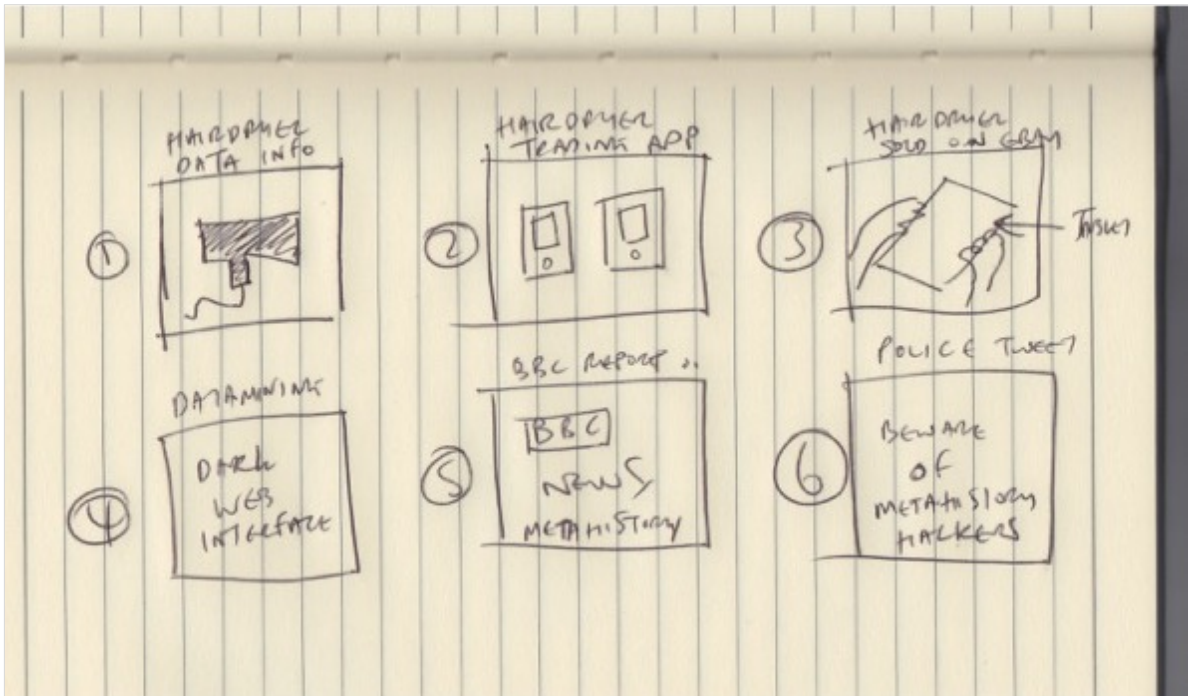 HAIRDRYER
DATA INFO
①
HAIRDRYER
TRADING APP
②
HAIRDRYER
SOLD ON EBAY
③
TABLET
DATAMINING
④
DARK
WEB
INTERFACE
BBC REPORT ..
⑤
BBC
NEWS
METAHISTORY
POLICE TWEET
⑥
BEWARE
OF
METAHISTORY
HACKERS